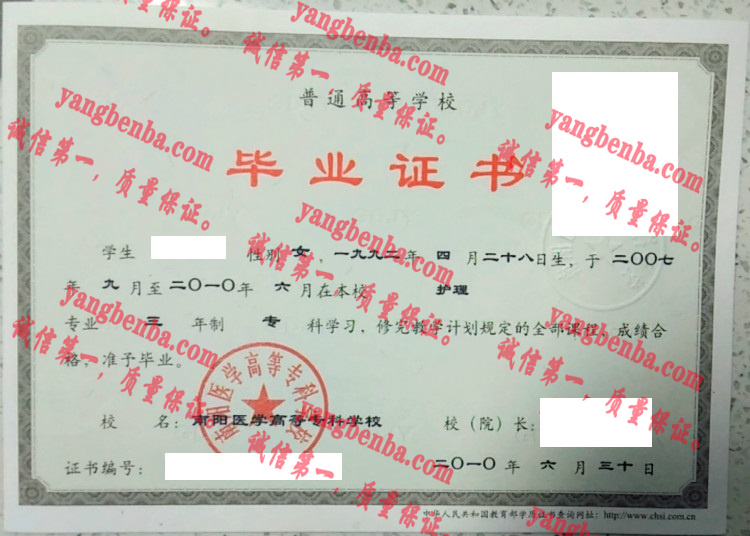 普通高等学校
毕业证书
学生 性别 女 ，一九九二年 四 月二十八日生，于 二〇〇七
年 九 月至 二〇一〇年 六 月在本校 护理
专业 三 年制 专 科学习，修完教学计划规定的全部课程，成绩合
格，准予毕业。
校 名：南阳医学高等专科学校
校（院）长：
证书编号：
二〇一〇 年 六 月 三十日
中华人民共和国教育部学历证书查询网址：http://www.chsi.com.cn
南阳医学高等专科学校
yangbenba.com
诚信第一，质量保证。
yangbenba.com
诚信第一，质量保证。
yangbenba.com
诚信第一，质量保证。
yangbenba.com
诚信第一，质量保证。
yangbenba.com
诚信第一，质量保证。
yangbenba.com
诚信第一，质量保证。
yangbenba.com
诚信第一，质量保证。
yangbenba.com
诚信第一，质量保证。
yangbenba.com
诚信第一，质量保证。